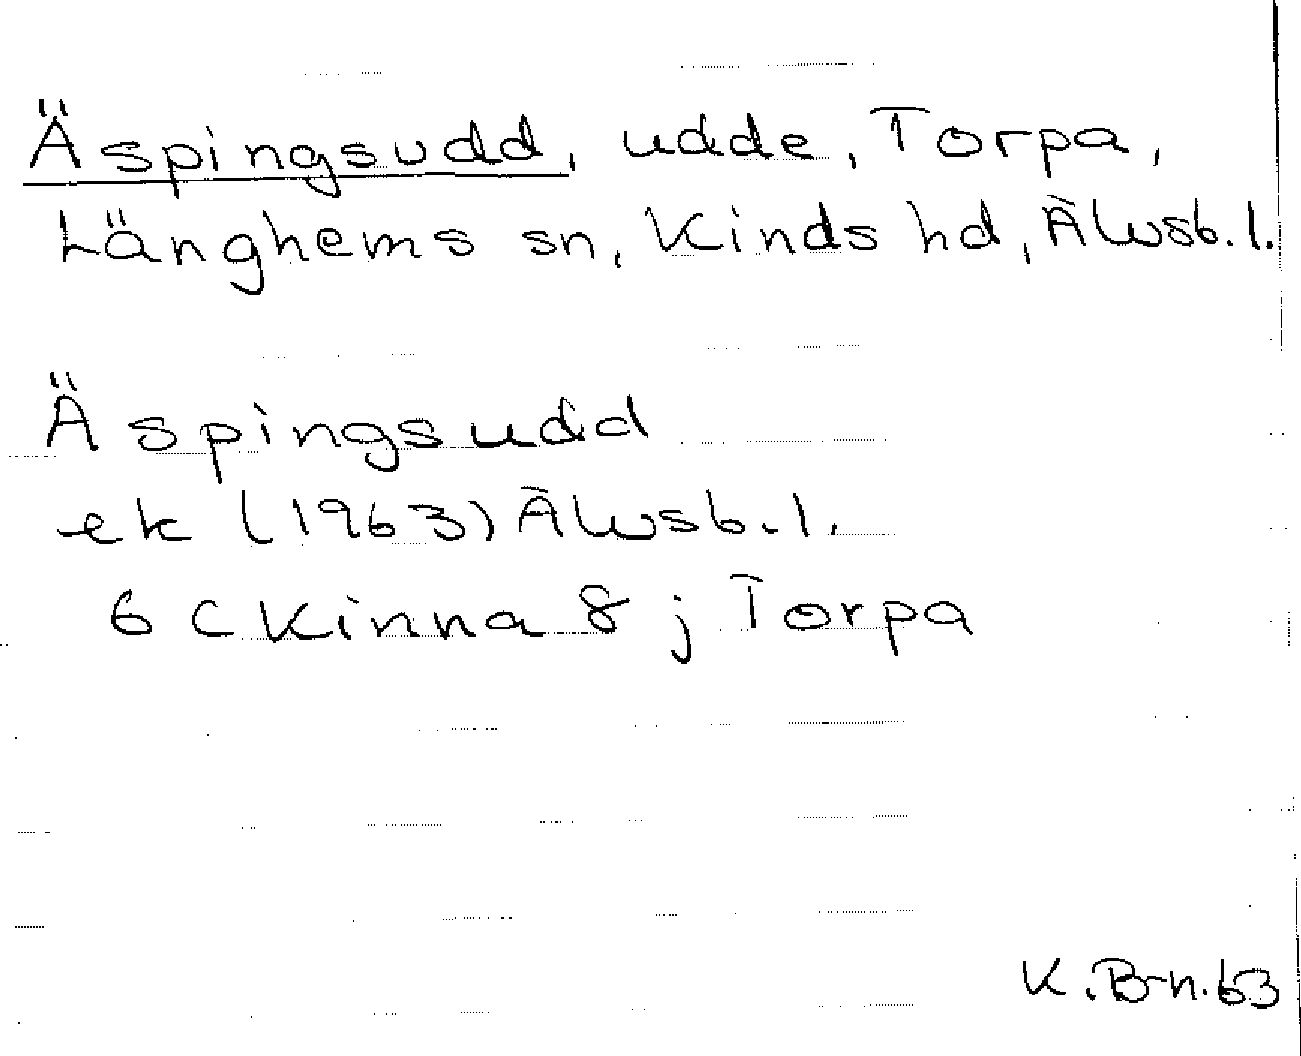 Äspingsudd, udde, Torpa,
Länghems sn, Kinds hd, Älvsb. l.
Äspingsudd
ek (1963) Älvsb. l.
6 C Kinna 8 j Torpa
K. B-n. 63